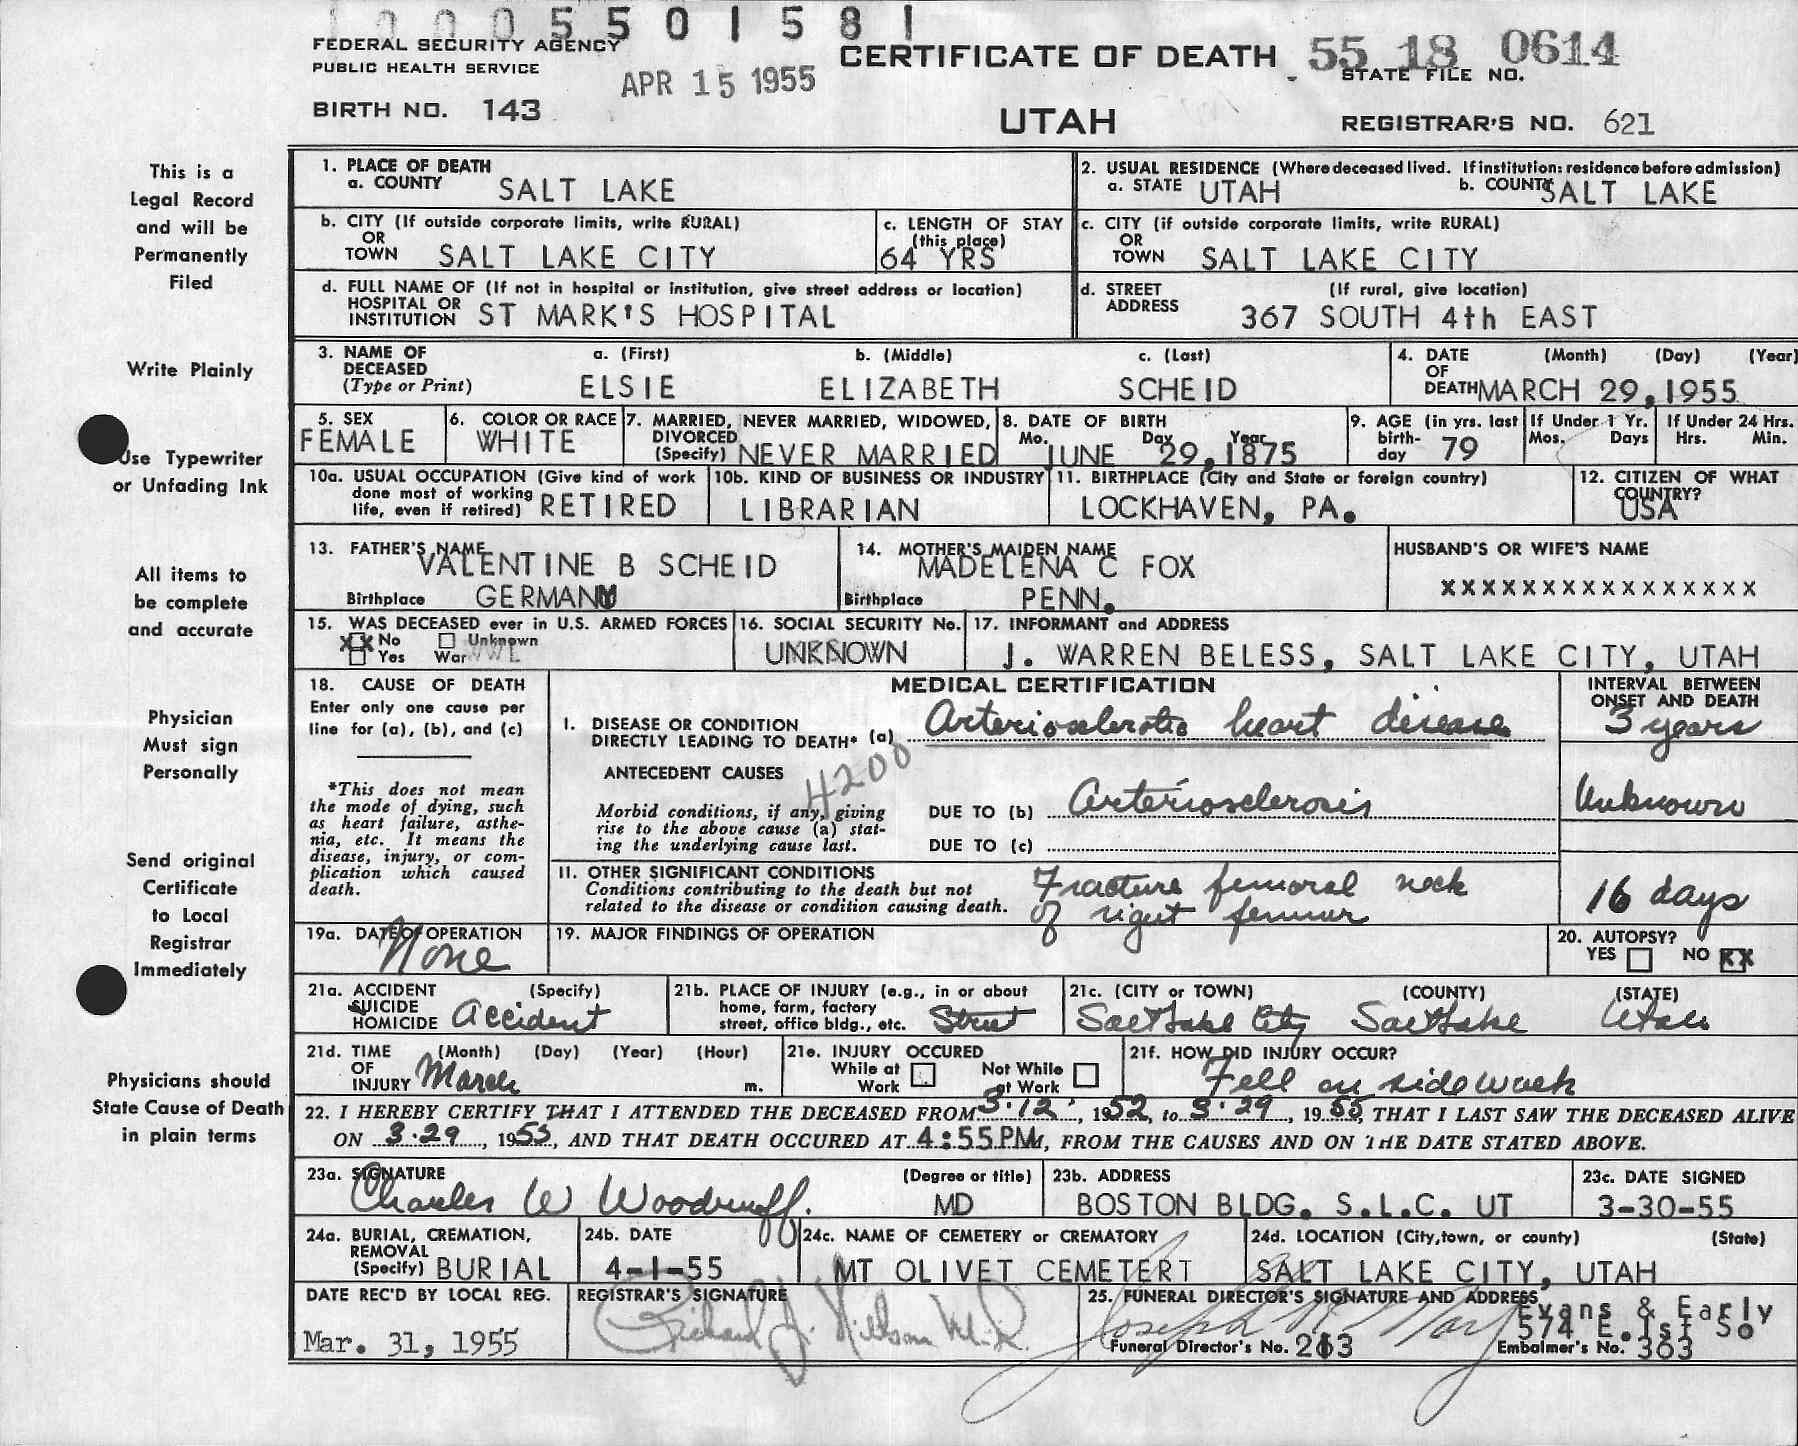 0005501581
FEDERAL SECURITY AGENCY
PUBLIC HEALTH SERVICE
APR 15 1955
CERTIFICATE OF DEATH
55 18 0614
STATE FILE NO.
BIRTH NO. 143
UTAH
REGISTRAR'S NO. 621
This is a
Legal Record
and will be
Permanently
Filed
Write Plainly
Use Typewriter
or Unfading Ink
All items to
be complete
and accurate
Physician
Must sign
Personally
Send original
Certificate
to Local
Registrar
Immediately
Physicians should
State Cause of Death
in plain terms
1. PLACE OF DEATH
a. COUNTY SALT LAKE
2. USUAL RESIDENCE (Where deceased lived. If institution: residence before admission)
a. STATE UTAH b. COUNTY SALT LAKE
b. CITY (If outside corporate limits, write RURAL)
OR
TOWN SALT LAKE CITY
c. LENGTH OF STAY
(this place)
64 YRS
c. CITY (if outside corporate limits, write RURAL)
OR
TOWN SALT LAKE CITY
d. FULL NAME OF (If not in hospital or institution, give street address or location)
HOSPITAL OR
INSTITUTION ST MARK'S HOSPITAL
d. STREET (If rural, give location)
ADDRESS 367 SOUTH 4th EAST
3. NAME OF DECEASED (Type or Print)
a. (First) b. (Middle) c. (Last)
ELSIE ELIZABETH SCHEID
4. DATE OF DEATH (Month) (Day) (Year)
MARCH 29, 1955
5. SEX
FEMALE
6. COLOR OR RACE
WHITE
7. MARRIED, NEVER MARRIED, WIDOWED,
DIVORCED
(Specify) NEVER MARRIED
8. DATE OF BIRTH
Mo. Day Year
JUNE 29, 1875
9. AGE (in yrs. last
birth-
day 79
If Under 1 Yr.
Mos. Days
If Under 24 Hrs.
Hrs. Min.
10a. USUAL OCCUPATION (Give kind of work
done most of working
life, even if retired) RETIRED
10b. KIND OF BUSINESS OR INDUSTRY
LIBRARIAN
11. BIRTHPLACE (City and State or foreign country)
LOCKHAVEN, PA.
12. CITIZEN OF WHAT
COUNTRY?
USA
13. FATHER'S NAME
VALENTINE B SCHEID
Birthplace GERMANY
14. MOTHER'S MAIDEN NAME
MADELENA C FOX
Birthplace PENN.
HUSBAND'S OR WIFE'S NAME
XXXXXXXXXXXXXXXX
15. WAS DECEASED ever in U.S. ARMED FORCES
XX No Unknown
Yes War
16. SOCIAL SECURITY No.
UNKNOWN
17. INFORMANT and ADDRESS
J. WARREN BELESS, SALT LAKE CITY, UTAH
18. CAUSE OF DEATH
Enter only one cause per
line for (a), (b), and (c)
*This does not mean
the mode of dying, such
as heart failure, asthe-
nia, etc. It means the
disease, injury, or com-
plication which caused
death.
MEDICAL CERTIFICATION
INTERVAL BETWEEN
ONSET AND DEATH
I. DISEASE OR CONDITION
DIRECTLY LEADING TO DEATH* (a) Arteriosclerotic heart disease
3 years
ANTECEDENT CAUSES
4200
Morbid conditions, if any, giving
rise to the above cause (a) stat-
ing the underlying cause last.
DUE TO (b) Arteriosclerosis
Unknown
DUE TO (c)
11. OTHER SIGNIFICANT CONDITIONS
Conditions contributing to the death but not
related to the disease or condition causing death.
Fracture femoral neck
of right femur
16 days
19a. DATE OF OPERATION
None
19. MAJOR FINDINGS OF OPERATION
20. AUTOPSY?
YES NO XX
21a. ACCIDENT (Specify)
SUICIDE
HOMICIDE Accident
21b. PLACE OF INJURY (e.g., in or about
home, farm, factory
street, office bldg., etc. Street
21c. (CITY or TOWN) (COUNTY) (STATE)
Salt Lake City Salt Lake Utah
21d. TIME (Month) (Day) (Year) (Hour)
OF
INJURY March m.
21e. INJURY OCCURED
While at Work Not While at Work
21f. HOW DID INJURY OCCUR?
Fell on sidewalk
22. I HEREBY CERTIFY THAT I ATTENDED THE DECEASED FROM 3-12, 1952, to 3-29, 1955, THAT I LAST SAW THE DECEASED ALIVE
ON 3-29, 1955, AND THAT DEATH OCCURED AT 4:55 PM, FROM THE CAUSES AND ON THE DATE STATED ABOVE.
23a. SIGNATURE (Degree or title)
Charles W Woodruff. MD
23b. ADDRESS
BOSTON BLDG. S.L.C. UT
23c. DATE SIGNED
3-30-55
24a. BURIAL, CREMATION,
REMOVAL
(Specify) BURIAL
24b. DATE
4-1-55
24c. NAME OF CEMETERY or CREMATORY
MT OLIVET CEMETERT
24d. LOCATION (City, town, or county) (State)
SALT LAKE CITY, UTAH
DATE REC'D BY LOCAL REG.
Mar. 31, 1955
REGISTRAR'S SIGNATURE
25. FUNERAL DIRECTOR'S SIGNATURE AND ADDRESS
Evans & Early
574 E. 1st So
Funeral Director's No. 213
Embalmer's No. 363